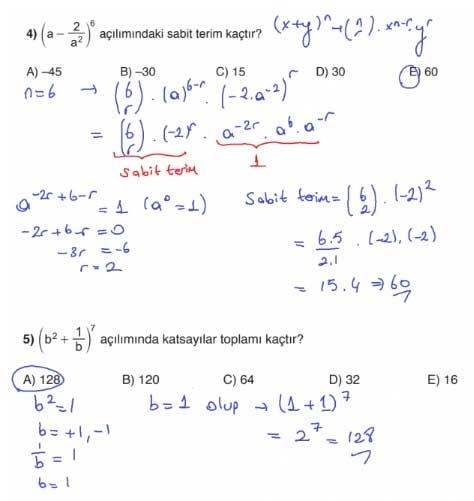 4) (a − 2/a²)⁶ açılımındaki sabit terim kaçtır? (x+y)ⁿ → (n r) . xⁿ⁻ʳ . yʳ
A) –45 B) –30 C) 15 D) 30 E) 60
n=6 → (6 r) . (a)⁶⁻ʳ . (-2.a⁻²)ʳ
= (6 r) . (-2)ʳ . a⁻²ʳ . a⁶ . a⁻ʳ
Sabit terim 1
a⁻²ʳ⁺⁶⁻ʳ = 1 (a⁰ = 1)
-2r+6-r = 0
-3r = -6
r = 2
Sabit terim = (6 2) . (-2)²
= 6.5/2.1 . (-2).(-2)
= 15.4 ⇒ 60
5) (b² + 1/b)⁷ açılımında katsayılar toplamı kaçtır?
A) 128 B) 120 C) 64 D) 32 E) 16
b² = 1
b = +1, -1
1/b = 1
b = 1
b = 1 olup → (1+1)⁷
= 2⁷ = 128